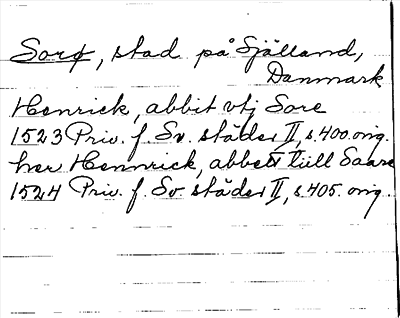 Sorø, stad på Själland,
Danmark
Henrick, abbit vtj Sore
1523 Priv. f. Sv. städer II, s. 400. orig.
her Hennrick, abbett tiill Saare
1524 Priv. f. Sv. städer II, s. 405. orig.